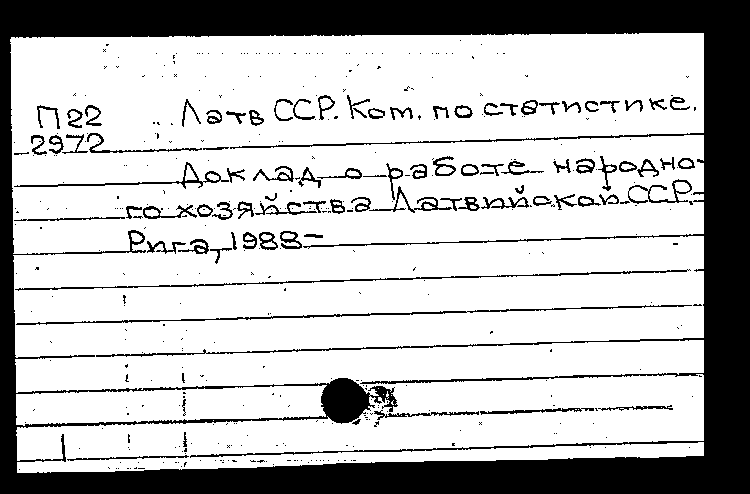 П22 Латв ССР. Ком. по статистике.
2972
Доклад о работе народно-
го хозяйства Латвийской ССР.-
Рига, 1988-